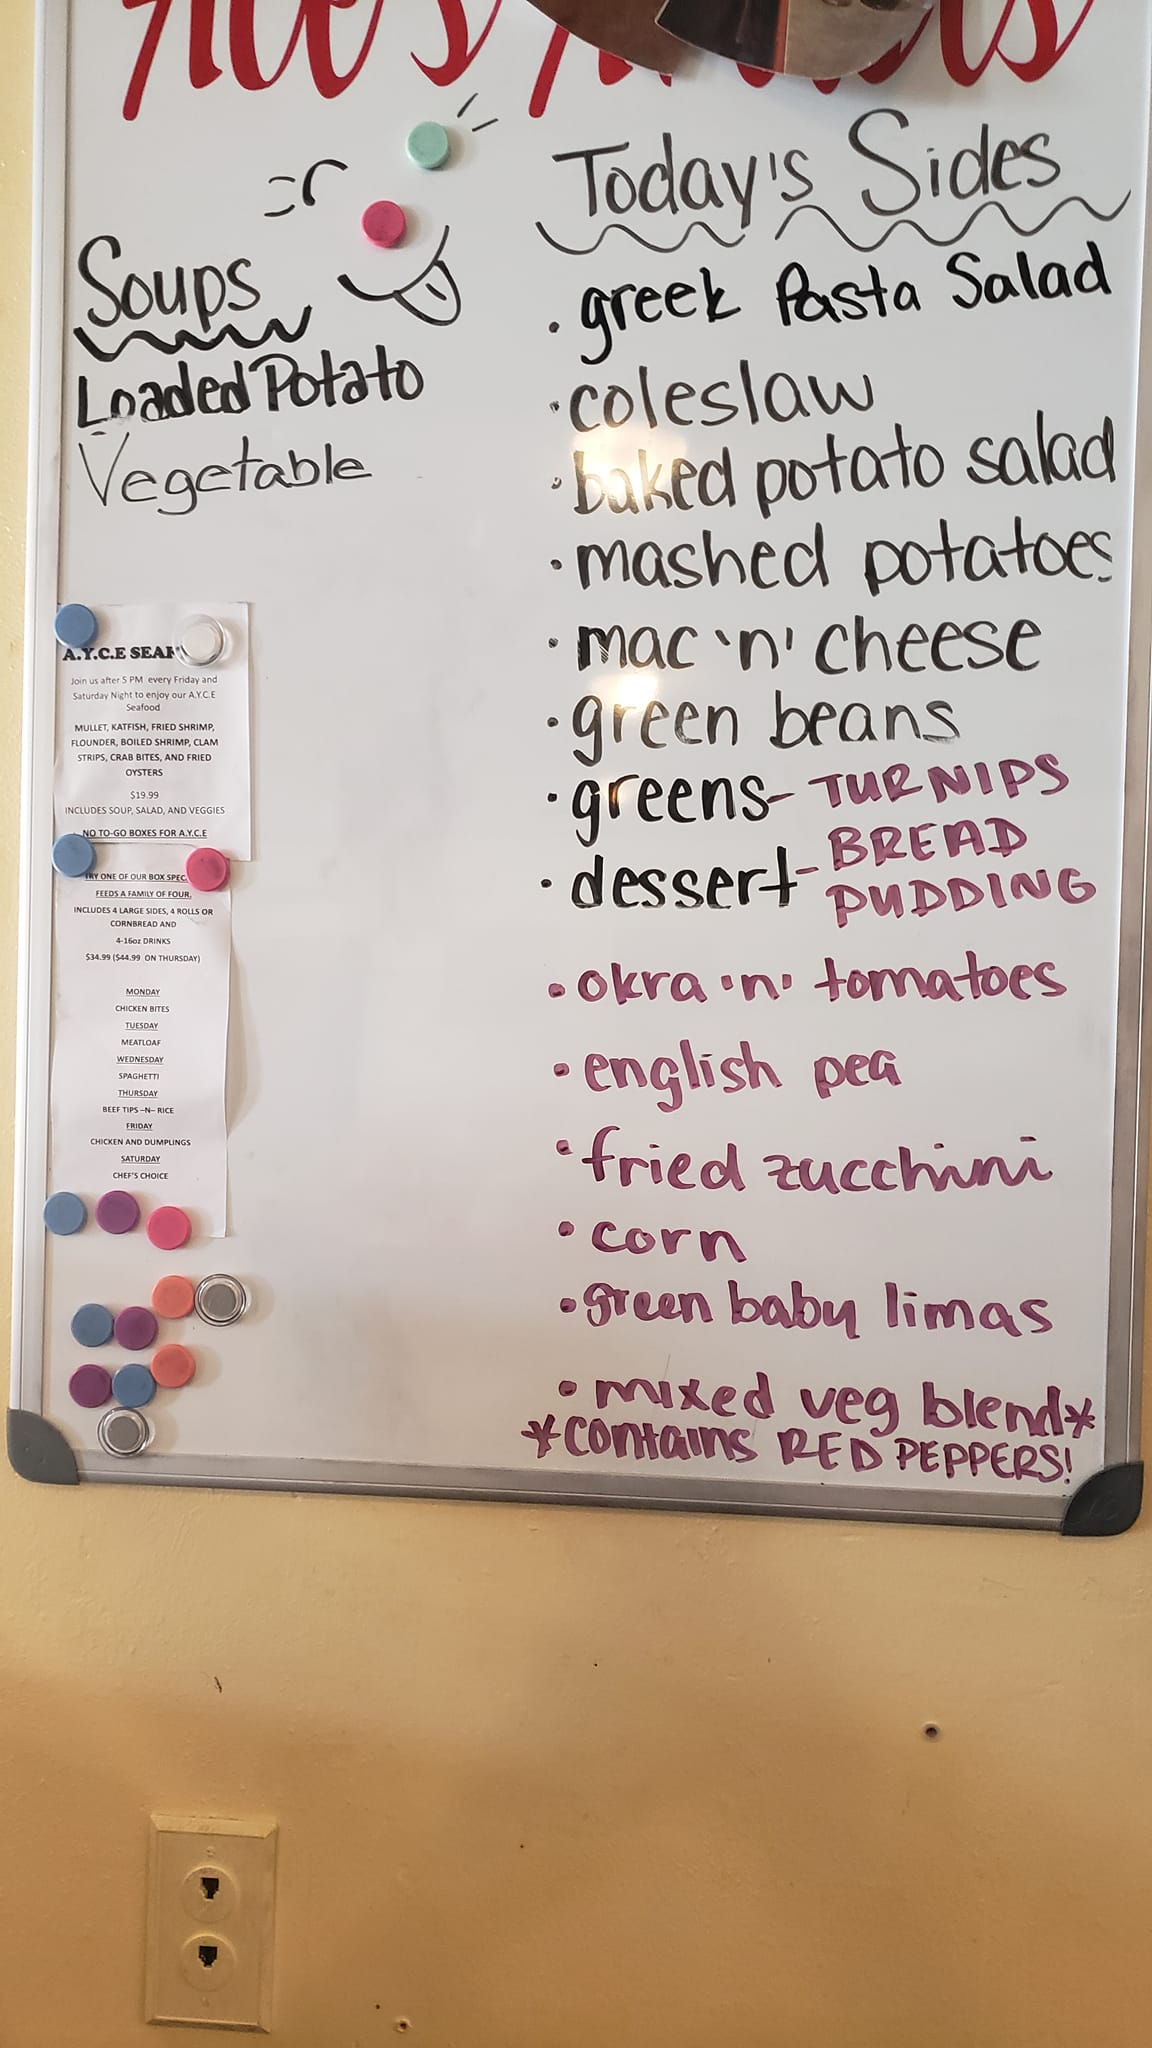 Today's Sides
Soups
Loaded Potato
Vegetable
· greek Pasta Salad
· coleslaw
· baked potato salad
· mashed potatoes
· mac 'n' cheese
· green beans
· greens - TURNIPS
· dessert - BREAD
PUDDING
· okra 'n' tomatoes
· english pea
· fried zucchini
· corn
· green baby limas
· mixed veg blend*
*contains RED PEPPERS!
A.Y.C.E
Join us after 5 PM every Friday and
Saturday Night to enjoy our A.Y.C.E
Seafood
MULLET, KATFISH, FRIED SHRIMP,
FLOUNDER, BOILED SHRIMP, CLAM
STRIPS, CRAB BITES, AND FRIED
OYSTERS
$19.99
INCLUDES SOUP, SALAD, AND VEGGIES
NO TO-GO BOXES FOR A.Y.C.E
TRY ONE OF OUR BOX
FEEDS A FAMILY OF FOUR.
INCLUDES 4 LARGE SIDES, 4 ROLLS OR
CORNBREAD AND
4-16oz DRINKS
$34.99 ($44.99 ON THURSDAY)
MONDAY
CHICKEN BITES
TUESDAY
MEATLOAF
WEDNESDAY
SPAGHETTI
THURSDAY
BEEF TIPS –N– RICE
FRIDAY
CHICKEN AND DUMPLINGS
SATURDAY
CHEF'S CHOICE